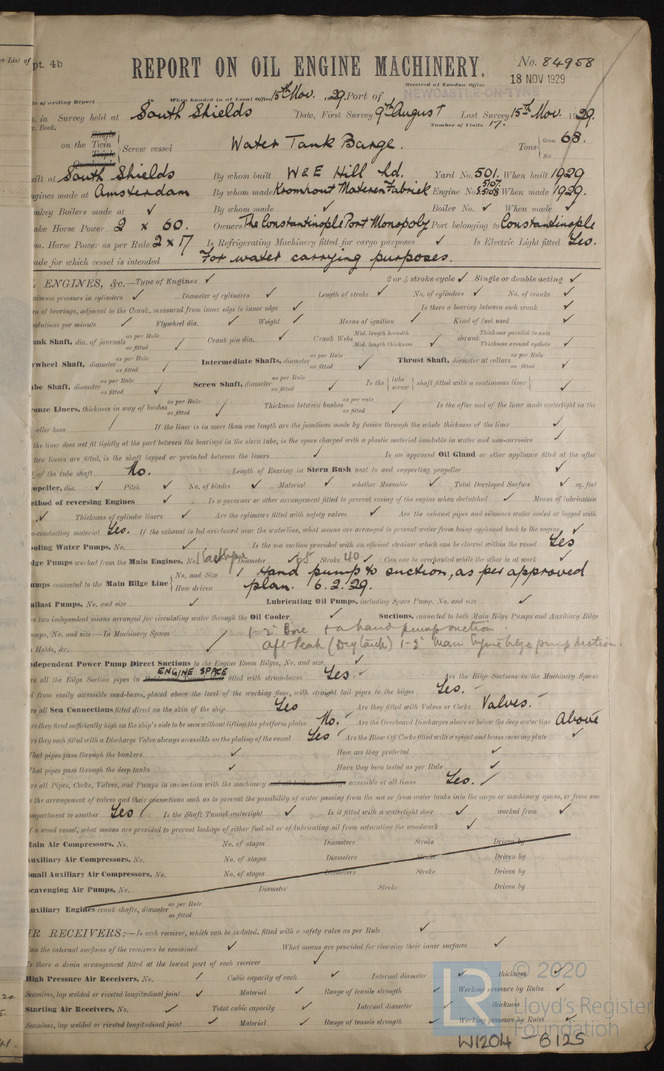 pt. 4b
REPORT ON OIL ENGINE MACHINERY.
No. 84958
18 NOV 1929
Received at London Office
NEWCASTLE-ON-TYNE
of writing Report When handed in at Local Office 15th Nov. 1929. Port of
in Survey held at South Shields Date, First Survey 9th August Last Survey 15th Nov. 1929.
Book. Number of Visits 17.
on the Single Twin Triple Quadruple Screw vessel Water Tank Barge. Tons Gross 68.
built at South Shields By whom built W & E Hill Ld. Yard No. 501. When built 1929
Engines made at Amsterdam By whom made Kromhout Motoren Fabriek Engine No. 5107 5108 When made 1929.
Donkey Boilers made at ✓ By whom made ✓ Boiler No. ✓ When made ✓
Brake Horse Power 2 x 60. Owners The Constantinople Port Monopoly Port belonging to Constantinople
Nom. Horse Power as per Rule 2 x 17 Is Refrigerating Machinery fitted for cargo purposes ✓ Is Electric Light fitted Yes.
Trade for which vessel is intended For water carrying purposes.
ENGINES, &c.—Type of Engines ✓ 2 or 4 stroke cycle ✓ Single or double acting ✓
Maximum pressure in cylinders ✓ Diameter of cylinders ✓ Length of stroke ✓ No. of cylinders ✓ No. of cranks ✓
of bearings, adjacent to the Crank, measured from inner edge to inner edge ✓ Is there a bearing between each crank ✓
Revolutions per minute ✓ Flywheel dia. ✓ Weight ✓ Means of ignition ✓ Kind of fuel used ✓
Crank Shaft, dia. of journals as per Rule as fitted ✓ Crank pin dia. ✓ Crank Webs Mid. length breadth Mid. length thickness ✓ shrunk Thickness parallel to axis Thickness around eyehole ✓
Flywheel Shaft, diameter as per Rule as fitted ✓ Intermediate Shafts, diameter as per Rule as fitted ✓ Thrust Shaft, diameter at collars as per Rule as fitted ✓
Tube Shaft, diameter as per Rule as fitted ✓ Screw Shaft, diameter as per Rule as fitted ✓ Is the tube screw shaft fitted with a continuous liner ✓
Bronze Liners, thickness in way of bushes as per Rule as fitted ✓ Thickness between bushes as per Rule as fitted ✓ Is the after end of the liner made watertight in the
propeller boss ✓ If the liner is in more than one length are the junctions made by fusion through the whole thickness of the liner ✓
the liner does not fit tightly at the part between the bearings in the stern tube, is the space charged with a plastic material insoluble in water and non-corrosive ✓
two liners are fitted, is the shaft lapped or protected between the liners ✓ Is an approved Oil Gland or other appliance fitted at the after
end of the tube shaft No. Length of Bearing in Stern Bush next to and supporting propeller ✓
Propeller, dia. ✓ Pitch ✓ No. of blades ✓ Material ✓ whether Moveable ✓ Total Developed Surface ✓ sq. feet
Method of reversing Engines ✓ Is a governor or other arrangement fitted to prevent racing of the engine when declutched ✓ Means of lubrication
✓ Thickness of cylinder liners ✓ Are the cylinders fitted with safety valves ✓ Are the exhaust pipes and silencers water cooled or lagged with
non-conducting material Yes. If the exhaust is led overboard near the waterline, what means are arranged to prevent water from being syphoned back to the engine ✓
Cooling Water Pumps, No. ✓ Is the sea suction provided with an efficient strainer which can be cleared within the vessel Yes
Bilge Pumps worked from the Main Engines, No. 1 Each Engine Diameter Stroke 40 ✓ Can one be overhauled while the other is at work ✓
Pumps connected to the Main Bilge Line No. and Size How driven Hand pump to suction, as per approved
plan. 6.2.29.
Ballast Pumps, No. and size ✓ Lubricating Oil Pumps, including Spare Pump, No. and size ✓
Are two independent means arranged for circulating water through the Oil Cooler ✓ Suctions, connected to both Main Bilge Pumps and Auxiliary Bilge
Pumps, No. and size:—In Machinery Spaces 1-2" Bore + a hand pump suction
Holds, &c. aft Peak (Dry tank) 1-2" main Engine bilge pump suction.
Independent Power Pump Direct Suctions to the Engine Room Bilges, No. and size ✓
Are all the Bilge Suction pipes in ENGINE SPACE fitted with strum-boxes Yes. Are the Bilge Suctions in the Machinery Spaces
led from easily accessible mud-boxes, placed above the level of the working floor, with straight tail pipes to the bilges Yes.
Are all Sea Connections fitted direct on the skin of the ship Yes Are they fitted with Valves or Cocks Valves.
Are they fixed sufficiently high on the ship's side to be seen without lifting the platform plates No. Are the Overboard Discharges above or below the deep water line Above
Are they each fitted with a Discharge Valve always accessible on the plating of the vessel Yes Are the Blow Off Cocks fitted with a spigot and brass covering plate ✓
What pipes pass through the bunkers ✓ How are they protected ✓
What pipes pass through the deep tanks ✓ Have they been tested as per Rule ✓
Are all Pipes, Cocks, Valves, and Pumps in connection with the machinery accessible at all times Yes.
Is the arrangement of valves and their connections such as to prevent the possibility of water passing from the sea or from water tanks into the cargo or machinery spaces, or from one
compartment to another Yes Is the Shaft Tunnel watertight ✓ Is it fitted with a watertight door ✓ worked from ✓
If a wood vessel, what means are provided to prevent leakage of either fuel oil or of lubricating oil from saturating the woodwork ✓
Main Air Compressors, No. No. of stages Diameters Stroke Driven by
Auxiliary Air Compressors, No. No. of stages Diameters Stroke Driven by
Small Auxiliary Air Compressors, No. No. of stages Diameters Stroke Driven by
Scavenging Air Pumps, No. Diameter Stroke Driven by
Auxiliary Engines crank shafts, diameter as per Rule as fitted
AIR RECEIVERS:—Is each receiver, which can be isolated, fitted with a safety valve as per Rule ✓
Can the internal surfaces of the receivers be examined ✓ What means are provided for cleaning their inner surfaces ✓
Is there a drain arrangement fitted at the lowest part of each receiver ✓
High Pressure Air Receivers, No. ✓ Cubic capacity of each ✓ Internal diameter ✓ thickness ✓
Seamless, lap welded or riveted longitudinal joint ✓ Material ✓ Range of tensile strength ✓ Working pressure by Rules ✓
Starting Air Receivers, No. ✓ Total cubic capacity ✓ Internal diameter ✓ thickness ✓
Seamless, lap welded or riveted longitudinal joint ✓ Material ✓ Range of tensile strength ✓ Working pressure by Rules ✓
© 2020
Lloyd's Register
Foundation
LR
W1204 - 0125